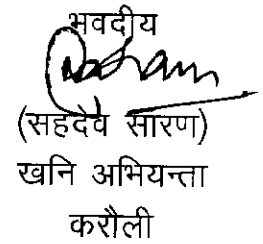 भवदीय
(सहदेव सारण)
खनि अभियन्ता
करौली